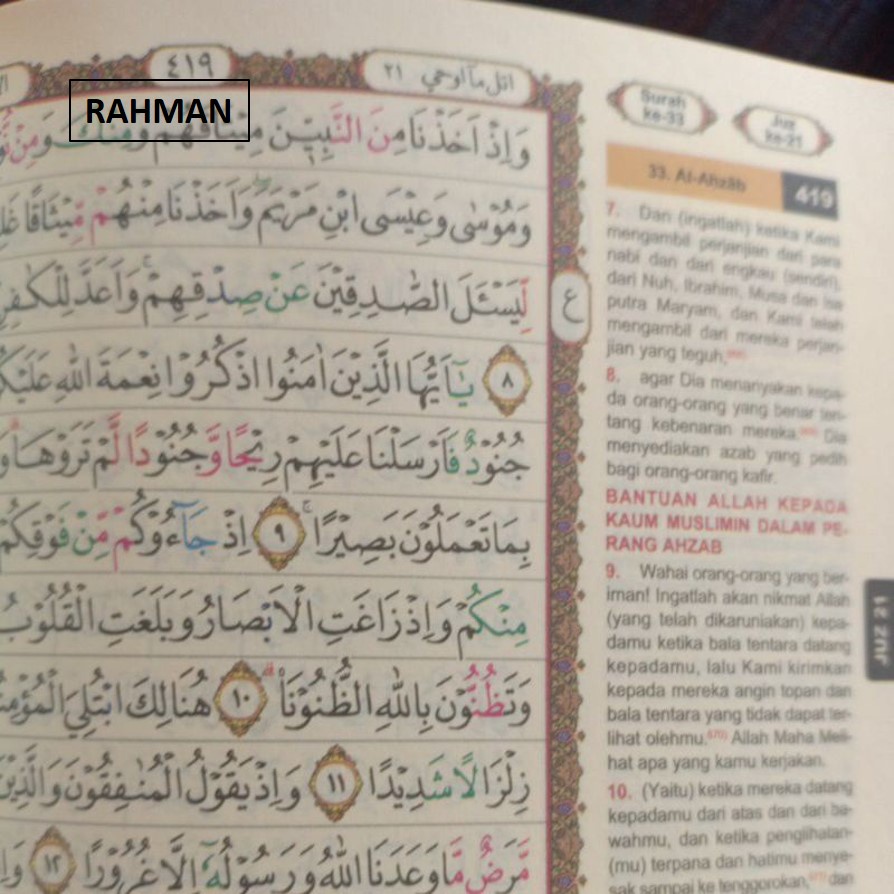 ٤١٩
اتل ما اوحي ٢١
RAHMAN
وَاِذْ اَخَذْنَا مِنَ النَّبِيّٖنَ مِيْثَاقَهُمْ وَمِنْكَ وَمِنْ
وَمُوْسٰى وَعِيْسَى ابْنِ مَرْيَمَ ۖوَاَخَذْنَا مِنْهُمْ مِّيْثَاقًا
لِّيَسْـَٔلَ الصّٰدِقِيْنَ عَنْ صِدْقِهِمْ ۚ وَاَعَدَّ
٨ يٰٓاَيُّهَا الَّذِيْنَ اٰمَنُوا اذْكُرُوْا نِعْمَةَ اللّٰهِ
جُنُوْدٌ فَاَرْسَلْنَا عَلَيْهِمْ رِيْحًا وَّجُنُوْدًا لَّمْ تَرَوْهَا ۗ
بِمَا تَعْمَلُوْنَ بَصِيْرًاۚ ٩ اِذْ جَاۤءُوْكُمْ مِّنْ فَوْقِكُمْ
مِنْكُمْ وَاِذْ زَاغَتِ الْاَبْصَارُ وَبَلَغَتِ الْقُلُوْبُ
وَتَظُنُّوْنَ بِاللّٰهِ الظُّنُوْنَا۠ ۗ ١٠ هُنَالِكَ ابْتُلِيَ
زِلْزَالًا شَدِيْدًا ١١ وَاِذْ يَقُوْلُ الْمُنٰفِقُوْنَ
مَّرَضٌ مَّا وَعَدَنَا اللّٰهُ وَرَسُوْلُهٗٓ اِلَّا غُرُوْرًا ١٢
ع
Surah
ke-33
Juz
ke-21
33. Al-Aḥzāb
419
7. Dan (ingatlah) ketika Kami
mengambil perjanjian dari para
nabi dan dari engkau (sendiri),
dari Nuh, Ibrahim, Musa dan Isa
putra Maryam, dan Kami telah
mengambil dari mereka perjan-
jian yang teguh,
8. agar Dia menanyakan kepa-
da orang-orang yang benar ten-
tang kebenaran mereka. Dia
menyediakan azab yang pedih
bagi orang-orang kafir.
BANTUAN ALLAH KEPADA
KAUM MUSLIMIN DALAM PE-
RANG AHZAB
9. Wahai orang-orang yang ber-
iman! Ingatlah akan nikmat Allah
(yang telah dikaruniakan) kepa-
damu ketika bala tentara datang
kepadamu, lalu Kami kirimkan
kepada mereka angin topan dan
bala tentara yang tidak dapat ter-
lihat olehmu.⁶⁷⁰⁾ Allah Maha Meli-
hat apa yang kamu kerjakan.
10. (Yaitu) ketika mereka datang
kepadamu dari atas dan dari ba-
wahmu, dan ketika penglihatan-
(mu) terpana dan hatimu menye-
sak sampai ke tenggorokan, dan
JUZ 21